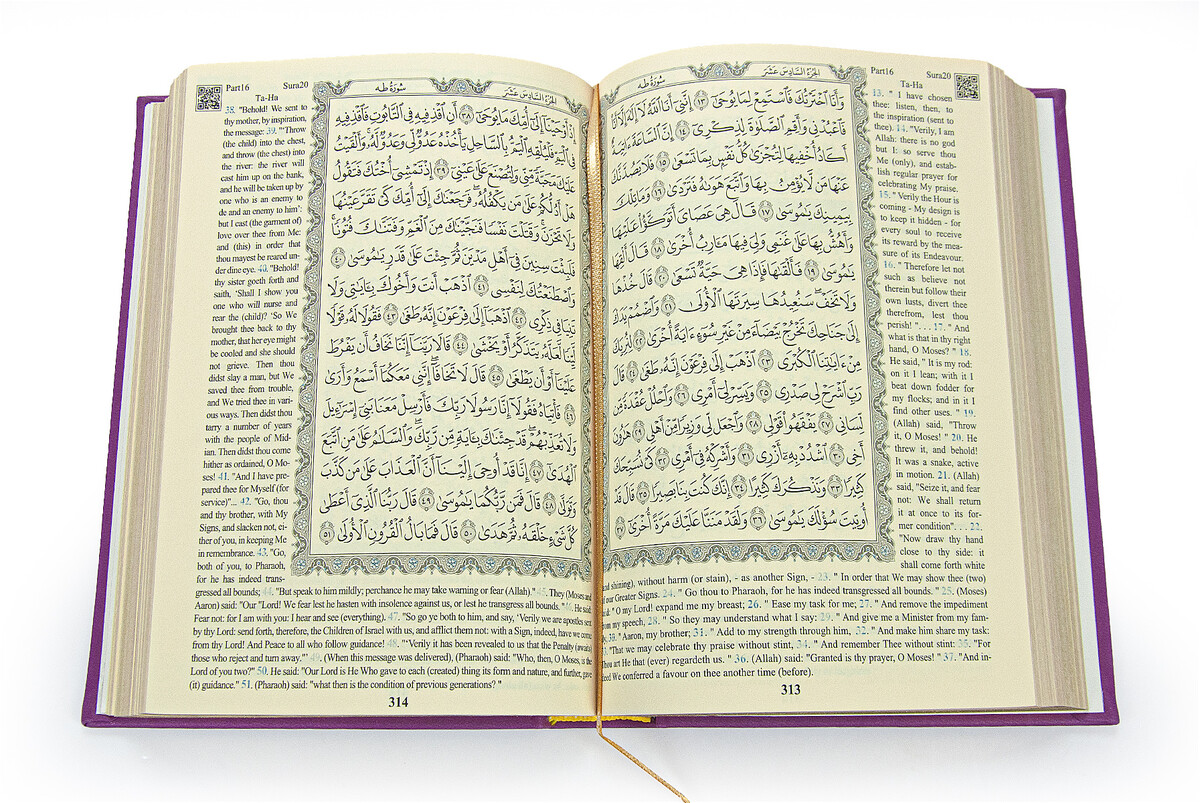 Part16
Sura20
سُورَةُ طه
الجُزءُ السَّادِسَ عَشَرَ
وَأَنَا ٱخْتَرْتُكَ فَٱسْتَمِعْ لِمَا يُوحَىٰٓ ١٣ إِنَّنِىٓ أَنَا ٱللَّهُ لَآ إِلَٰهَ إِلَّآ أَنَا۠
فَٱعْبُدْنِى وَأَقِمِ ٱلصَّلَوٰةَ لِذِكْرِىٓ ١٤ إِنَّ ٱلسَّاعَةَ ءَاتِيَةٌ
أَكَادُ أُخْفِيهَا لِتُجْزَىٰ كُلُّ نَفْسٍۭ بِمَا تَسْعَىٰ ١٥ فَلَا يَصُدَّنَّكَ
عَنْهَا مَن لَّا يُؤْمِنُ بِهَا وَٱتَّبَعَ هَوَىٰهُ فَتَرْدَىٰ ١٦ وَمَا تِلْكَ
بِيَمِينِكَ يَٰمُوسَىٰ ١٧ قَالَ هِىَ عَصَاىَ أَتَوَكَّؤُا۟ عَلَيْهَا
وَأَهُشُّ بِهَا عَلَىٰ غَنَمِى وَلِىَ فِيهَا مَـَٔارِبُ أُخْرَىٰ ١٨ قَالَ أَلْقِهَا
يَٰمُوسَىٰ ١٩ فَأَلْقَىٰهَا فَإِذَا هِىَ حَيَّةٌ تَسْعَىٰ ٢٠ قَالَ خُذْهَا
وَلَا تَخَفْ ۖ سَنُعِيدُهَا سِيرَتَهَا ٱلْأُولَىٰ ٢١ وَٱضْمُمْ يَدَكَ
إِلَىٰ جَنَاحِكَ تَخْرُجْ بَيْضَآءَ مِنْ غَيْرِ سُوٓءٍ ءَايَةً أُخْرَىٰ ٢٢ لِنُرِيَكَ
مِنْ ءَايَٰتِنَا ٱلْكُبْرَى ٢٣ ٱذْهَبْ إِلَىٰ فِرْعَوْنَ إِنَّهُۥ طَغَىٰ ٢٤ قَالَ
رَبِّ ٱشْرَحْ لِى صَدْرِى ٢٥ وَيَسِّرْ لِىٓ أَمْرِى ٢٦ وَٱحْلُلْ عُقْدَةً مِّن
لِّسَانِى ٢٧ يَفْقَهُوا۟ قَوْلِى ٢٨ وَٱجْعَل لِّى وَزِيرًا مِّنْ أَهْلِى ٢٩ هَٰرُونَ
أَخِى ٣٠ ٱشْدُدْ بِهِۦٓ أَزْرِى ٣١ وَأَشْرِكْهُ فِىٓ أَمْرِى ٣٢ كَىْ نُسَبِّحَكَ
كَثِيرًا ٣٣ وَنَذْكُرَكَ كَثِيرًا ٣٤ إِنَّكَ كُنتَ بِنَا بَصِيرًا ٣٥ قَالَ قَدْ
أُوتِيتَ سُؤْلَكَ يَٰمُوسَىٰ ٣٦ وَلَقَدْ مَنَنَّا عَلَيْكَ مَرَّةً أُخْرَىٰٓ ٣٧
Ta-Ha
13. " I have chosen
thee: listen, then, to
the inspiration (sent to
thee). 14. "Verily, I am
Allah: there is no god
but I: so serve thou
Me (only), and estab-
lish regular prayer for
celebrating My praise.
15. " Verily the Hour is
coming - My design is
to keep it hidden - for
every soul to receive
its reward by the mea-
sure of its Endeavour.
16. " Therefore let not
such as believe not
therein but follow their
own lusts, divert thee
therefrom, lest thou
perish! ". . . 17. " And
what is that in thy right
hand, O Moses? " 18.
He said, " It is my rod:
on it I lean; with it I
beat down fodder for
my flocks; and in it I
find other uses. " 19.
(Allah) said, "Throw
it, O Moses! " 20. He
threw it, and behold!
It was a snake, active
in motion. 21. (Allah)
said, "Seize it, and fear
not: We shall return
it at once to its for-
mer condition". . . 22.
"Now draw thy hand
close to thy side: it
shall come forth white
and shining), without harm (or stain), - as another Sign, - 23. " In order that We may show thee (two)
of our Greater Signs. 24. " Go thou to Pharaoh, for he has indeed transgressed all bounds. " 25. (Moses)
said: "O my Lord! expand me my breast; 26. " Ease my task for me; 27. " And remove the impediment
from my speech, 28. " So they may understand what I say: 29. " And give me a Minister from my fam-
ily, 30. "Aaron, my brother; 31. " Add to my strength through him, 32. " And make him share my task:
33. "That we may celebrate thy praise without stint, 34. " And remember Thee without stint: 35. "For
Thou art He that (ever) regardeth us. " 36. (Allah) said: "Granted is thy prayer, O Moses! " 37. "And in-
deed We conferred a favour on thee another time (before).
313
Part16
Sura20
سُورَةُ طه
الجُزءُ السَّادِسَ عَشَرَ
إِذْ أَوْحَيْنَآ إِلَىٰٓ أُمِّكَ مَا يُوحَىٰٓ ٣٨ أَنِ ٱقْذِفِيهِ فِى ٱلتَّابُوتِ فَٱقْذِفِيهِ
فِى ٱلْيَمِّ فَلْيُلْقِهِ ٱلْيَمُّ بِٱلسَّاحِلِ يَأْخُذْهُ عَدُوٌّ لِّى وَعَدُوٌّ لَّهُۥ ۚ وَأَلْقَيْتُ
عَلَيْكَ مَحَبَّةً مِّنِّى وَلِتُصْنَعَ عَلَىٰ عَيْنِىٓ ٣٩ إِذْ تَمْشِىٓ أُخْتُكَ فَتَقُولُ
هَلْ أَدُلُّكُمْ عَلَىٰ مَن يَكْفُلُهُۥ ۖ فَرَجَعْنَٰكَ إِلَىٰٓ أُمِّكَ كَىْ تَقَرَّ عَيْنُهَا
وَلَا تَحْزَنَ ۚ وَقَتَلْتَ نَفْسًا فَنَجَّيْنَٰكَ مِنَ ٱلْغَمِّ وَفَتَنَّٰكَ فُتُونًا ۚ
فَلَبِثْتَ سِنِينَ فِىٓ أَهْلِ مَدْيَنَ ثُمَّ جِئْتَ عَلَىٰ قَدَرٍ يَٰمُوسَىٰ ٤٠
وَٱصْطَنَعْتُكَ لِنَفْسِى ٤١ ٱذْهَبْ أَنتَ وَأَخُوكَ بِـَٔايَٰتِى وَلَا
تَنِيَا فِى ذِكْرِى ٤٢ ٱذْهَبَآ إِلَىٰ فِرْعَوْنَ إِنَّهُۥ طَغَىٰ ٤٣ فَقُولَا لَهُۥ قَوْلًا
لَّيِّنًا لَّعَلَّهُۥ يَتَذَكَّرُ أَوْ يَخْشَىٰ ٤٤ قَالَا رَبَّنَآ إِنَّنَا نَخَافُ أَن يَفْرُطَ
عَلَيْنَآ أَوْ أَن يَطْغَىٰ ٤٥ قَالَ لَا تَخَافَآ ۖ إِنَّنِى مَعَكُمَآ أَسْمَعُ وَأَرَىٰ
٤٦ فَأْتِيَاهُ فَقُولَآ إِنَّا رَسُولَا رَبِّكَ فَأَرْسِلْ مَعَنَا بَنِىٓ إِسْرَٰٓءِيلَ
وَلَا تُعَذِّبْهُمْ ۖ قَدْ جِئْنَٰكَ بِـَٔايَةٍ مِّن رَّبِّكَ ۖ وَٱلسَّلَٰمُ عَلَىٰ مَنِ ٱتَّبَعَ
ٱلْهُدَىٰٓ ٤٧ إِنَّا قَدْ أُوحِىَ إِلَيْنَآ أَنَّ ٱلْعَذَابَ عَلَىٰ مَن كَذَّبَ
وَتَوَلَّىٰ ٤٨ قَالَ فَمَن رَّبُّكُمَا يَٰمُوسَىٰ ٤٩ قَالَ رَبُّنَا ٱلَّذِىٓ أَعْطَىٰ
كُلَّ شَىْءٍ خَلْقَهُۥ ثُمَّ هَدَىٰ ٥٠ قَالَ فَمَا بَالُ ٱلْقُرُونِ ٱلْأُولَىٰ ٥١
Ta-Ha
38. "Behold! We sent to
thy mother, by inspiration,
the message: 39. "'Throw
(the child) into the chest,
and throw (the chest) into
the river: the river will
cast him up on the bank,
and he will be taken up by
one who is an enemy to
de and an enemy to him':
but I cast (the garment of)
love over thee from Me:
and (this) in order that
thou mayest be reared un-
der dine eye. 40. "Behold!
thy sister goeth forth and
saith, 'Shall I show you
one who will nurse and
rear the (child)? 'So We
brought thee back to thy
mother, that her eye might
be cooled and she should
not grieve. Then thou
didst slay a man, but We
saved thee from trouble,
and We tried thee in vari-
ous ways. Then didst thou
tarry a number of years
with the people of Mid-
ian. Then didst thou come
hither as ordained, O Mo-
ses! 41. "And I have pre-
pared thee for Myself (for
service)"... 42. "Go, thou
and thy brother, with My
Signs, and slacken not, ei-
ther of you, in keeping Me
in remembrance. 43. "Go,
both of you, to Pharaoh,
for he has indeed trans-
gressed all bounds; 44. "But speak to him mildly; perchance he may take warning or fear (Allah)." 45. They (Moses and
Aaron) said: "Our "Lord! We fear lest he hasten with insolence against us, or lest he transgress all bounds. "46. He said:
Fear not: for I am with you: I hear and see (everything). 47. "So go ye both to him, and say, 'Verily we are apostles sent
by thy Lord: send forth, therefore, the Children of Israel with us, and afflict them not: with a Sign, indeed, have we come
from thy Lord! And Peace to all who follow guidance! 48. "'Verily it has been revealed to us that the Penalty (awaits)
those who reject and turn away.'" 49. (When this message was delivered), (Pharaoh) said: "Who, then, O Moses, is the
Lord of you two?" 50. He said: "Our Lord is He Who gave to each (created) thing its form and nature, and further, gave
(it) guidance." 51. (Pharaoh) said: "what then is the condition of previous generations? "
314